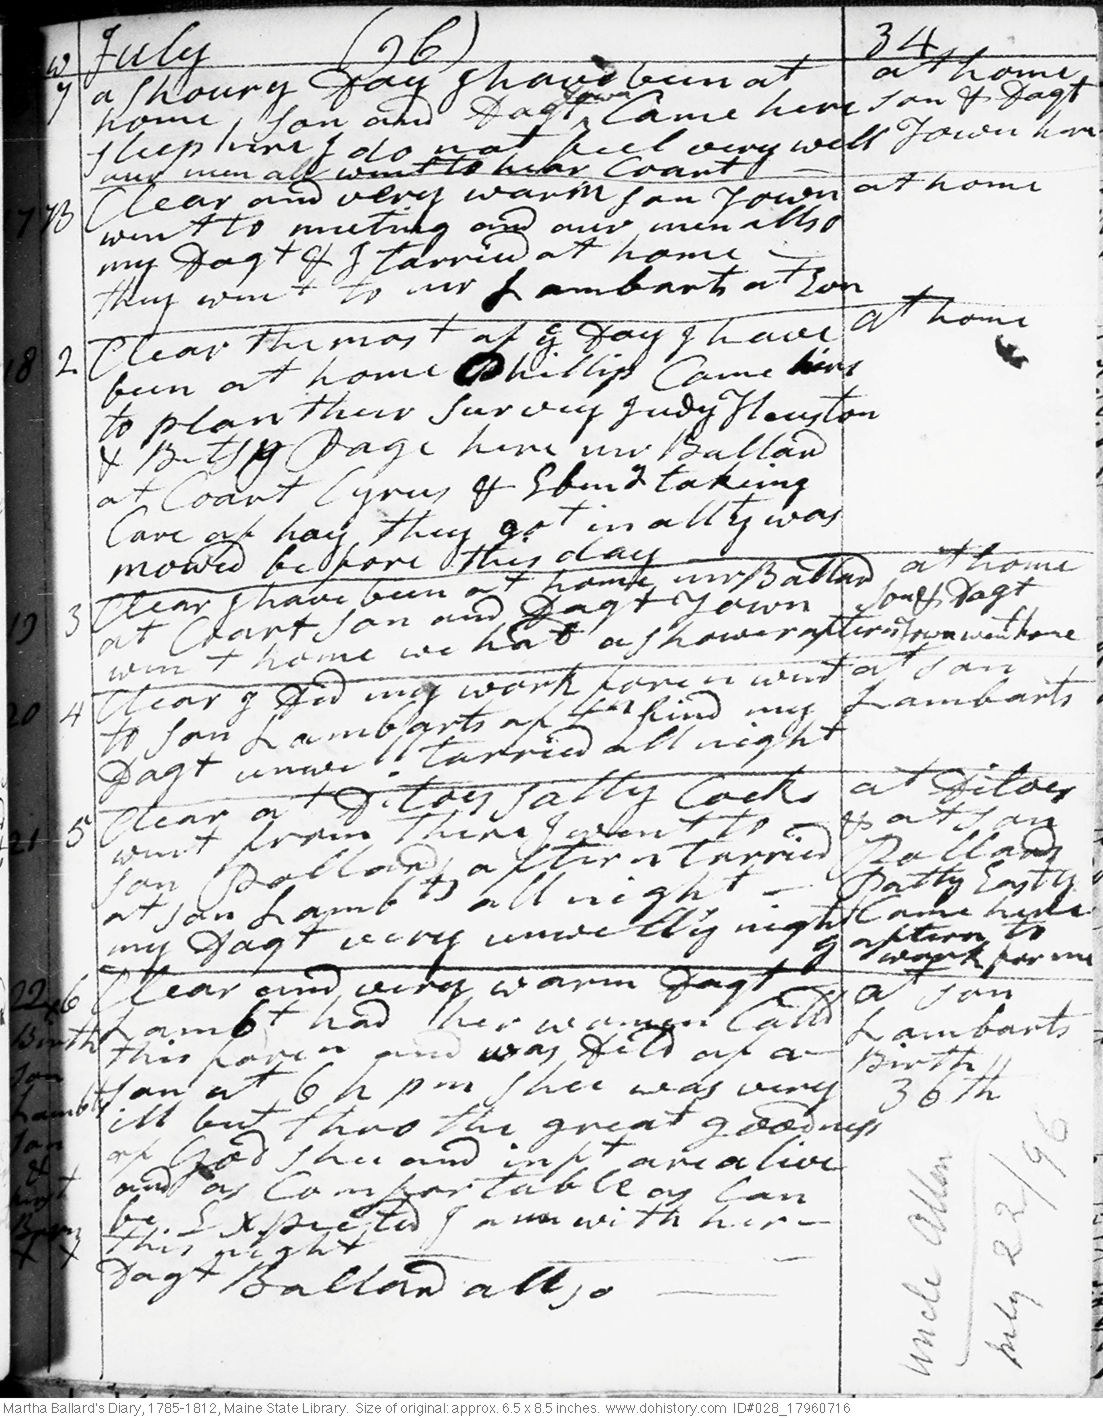 July (96) 34
w
7 a Shoury Day I have been at at home,
home, Son and Dagt Town Came here Son & Dagt
sleep here I do not feel very well Town here
our men all went to hear Coart
17 7B Clear and very warm Son Town at home
went to meeting and our men allso
my Dagt & I tarried at home —
they went to mr Lambarts at Evn
18 2 Clear the most of ye Day I have at home
been at home Phillip Came here
to plan their Survey Judy Heuston
& Betsy Page here mr Ballard
at Coart Cyrus & Ebenz taking
Care of hay they got in all ty was
mowed before this day
19 3 Clear I have been at home, mr Ballard at home
at Coart Son and Dagt Town Son & Dagt
went home we had a shower aftern Town went home
20 4 Clear I Did my work foren went at Son
to Son Lambarts aftern find my Lambarts
Dagt unwell. tarried all night
21 5 Clear at Ditoes Sally Cocks at Ditoes
went from there I went to & at Son
Son Pollards, aftern tarried Pollards
at Son Lambts all night — Patty Easty
my Dagt very unwell ys night Came here
aftern to
work for me
22 6 Clear and very warm Dagt at Son
Birth Lambt had her women Calld Lambarts
this foren and was Dild of a Birth
Son Son at 6 h pm Shee was very 36th
Lambts ill but thro the great goodness
Son of God Shee and inft are alive
& and as Comfortable as Can
first be. Expected I am with her —
Born this night
X X
Dagt Ballard allso
Uncle Allen
July 22/96
Martha Ballard's Diary, 1785-1812, Maine State Library. Size of original: approx. 6.5 x 8.5 inches. www.dohistory.com ID#028_17960716